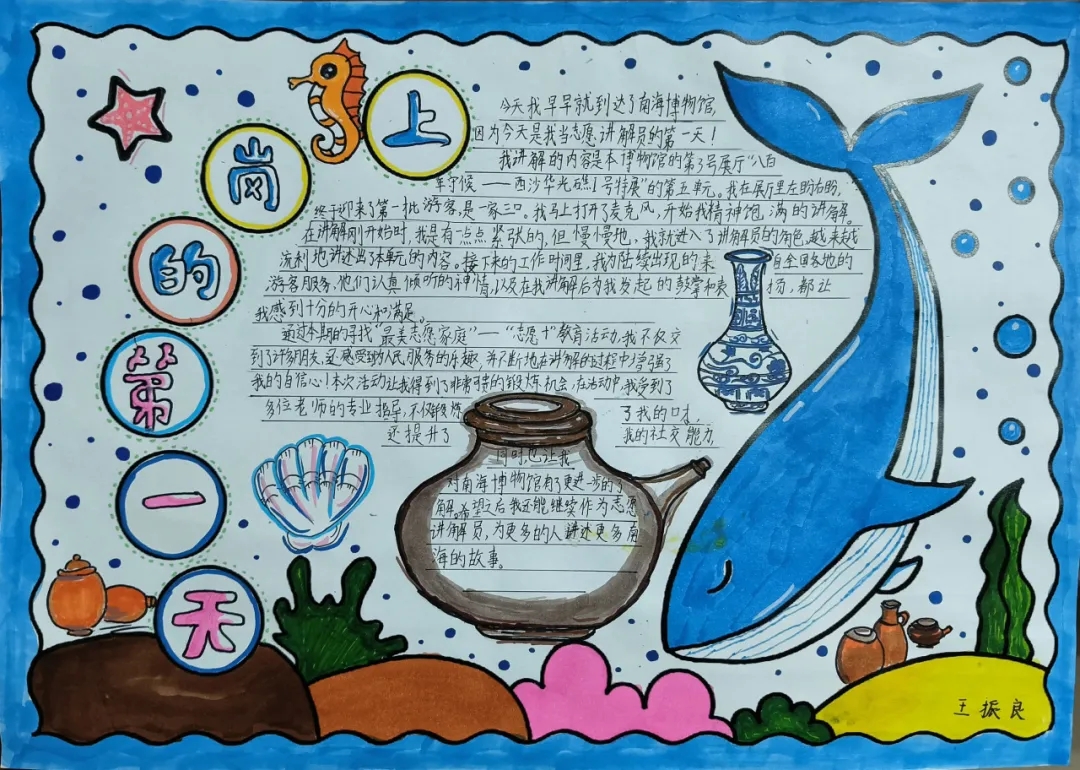 上岗的第一天
今天我早早就到达了南海博物馆,
因为今天是我当志愿讲解员的第一天!
我讲解的内容是本博物馆的第3号展厅“八百
年守候——西沙华光礁I号特展”的第五单元。我在展厅里左盼右盼,
终于迎来了第一批游客,是一家三口。我马上打开了麦克风,开始我精神饱满的讲解。
在讲解刚开始时,我是有一点点紧张的,但慢慢地,我就进入了讲解员的角色,越来越
流利地讲述出了本单元的内容。接下来的工作时间里,我为陆续出现的来自全国各地的
游客服务,他们认真倾听的神情,以及在我讲解后为我发起的鼓掌和表扬,都让
我感到十分的开心和满足。
通过本期的寻找“最美志愿家庭”—“志愿+”教育活动,我不仅交
到了许多朋友,还感受到为人民服务的乐趣,并不断地在讲解的过程中增强了
我的自信心!本次活动让我得到了非常可贵的锻炼机会,在活动中,我受到了
多位老师的专业指导,不仅锻炼了我的口才,
还提升了我的社交能力,
同时也让我
对南海博物馆有了更进一步的了
解。希望之后我还能继续作为志愿
讲解员,为更多的人讲述更多南
海的故事。
王振良